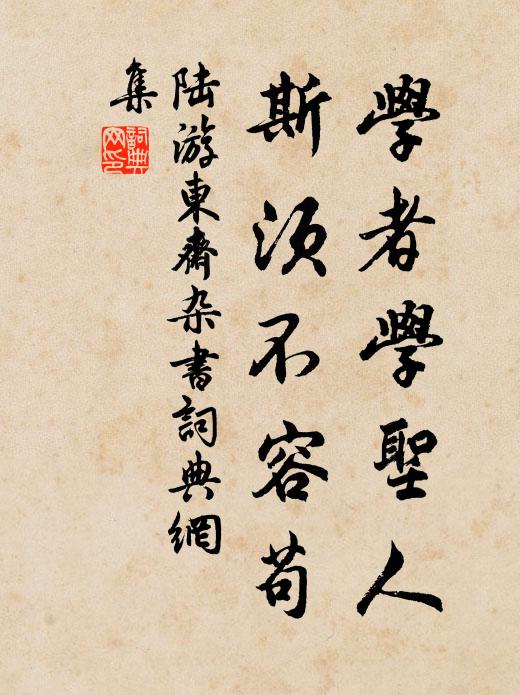 學者學聖人
斯須不容苟
陸游東齋杂書詞典網
集
詞典
网印